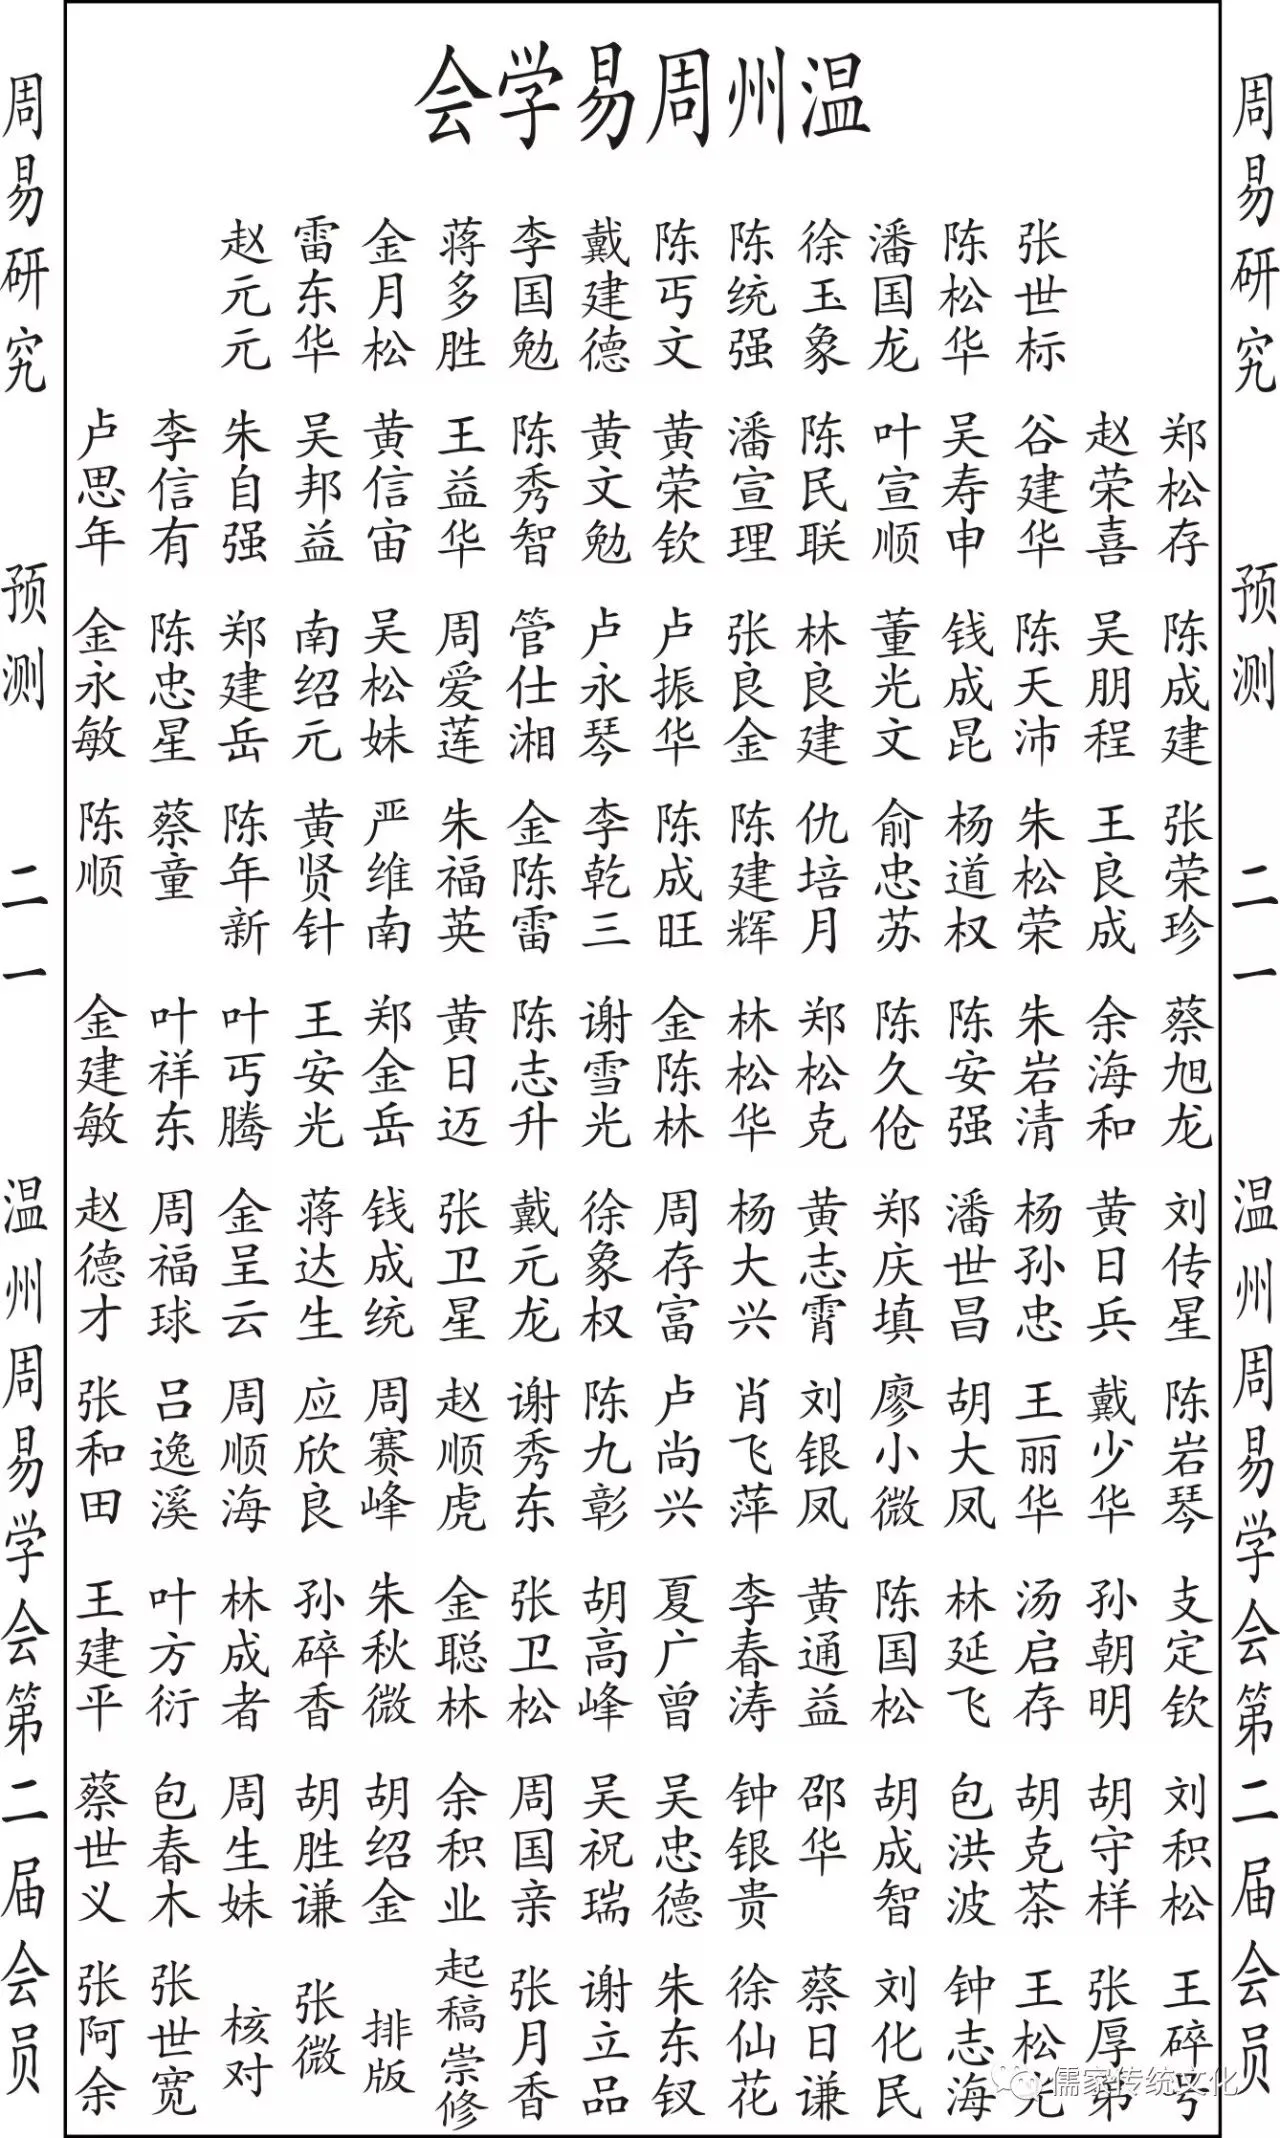 周易研究 预测 二一 温州周易学会第二届会员
温州周易学会
张世标
陈松华
潘国龙
徐玉象
陈统强
陈丐文
戴建德
李国勉
蒋多胜
金月松
雷东华
赵元元
郑松存
赵荣喜
谷建华
吴寿申
叶宣顺
陈民联
潘宣理
黄荣钦
黄文勉
陈秀智
王益华
黄信宙
吴邦益
朱自强
李信有
卢思年
陈成建
吴朋程
陈天沛
钱成昆
董光文
林良建
张良金
卢振华
卢永琴
管仕湘
周爱莲
吴松妹
南绍元
郑建岳
陈忠星
金永敏
张荣珍
王良成
朱松荣
杨道权
俞忠苏
仇培月
陈建辉
陈成旺
李乾三
金陈雷
朱福英
严维南
黄贤针
陈年新
蔡童
陈顺
蔡旭龙
余海和
朱岩清
陈安强
陈久伧
郑松克
林松华
金陈林
谢雪光
陈志升
黄日迈
郑金岳
王安光
叶丐腾
叶祥东
金建敏
刘传星
黄日兵
杨孙忠
潘世昌
郑庆填
黄志霄
杨大兴
周存富
徐象权
戴元龙
张卫星
钱成统
蒋达生
金呈云
周福球
赵德才
陈岩琴
戴少华
王丽华
胡大凤
廖小微
刘银凤
肖飞萍
卢尚兴
陈九彰
谢秀东
赵顺虎
周赛峰
应欣良
周顺海
吕逸溪
张和田
支定钦
孙朝明
汤启存
林延飞
陈国松
黄通益
李春涛
夏广曾
胡高峰
张卫松
金聪林
朱秋微
孙碎香
林成者
叶方衍
王建平
刘积松
胡守样
胡克茶
包洪波
胡成智
邵华
钟银贵
吴忠德
吴祝瑞
周国亲
余积业
胡绍金
胡胜谦
周生妹
包春木
蔡世义
王碎号
张厚弟
王松光
钟志海
刘化民
蔡日谦
徐仙花
朱东钗
谢立品
张月香
起稿崇修
排版
张微
核对
张世宽
张阿余
周易研究 预测 二一 温州周易学会第二届会员
儒家传统文化